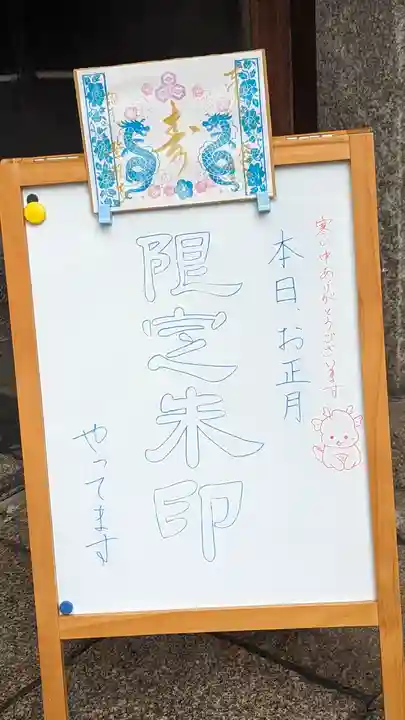 寿
寒い中ありがとうございます
本日、お正月
限定朱印
やってます